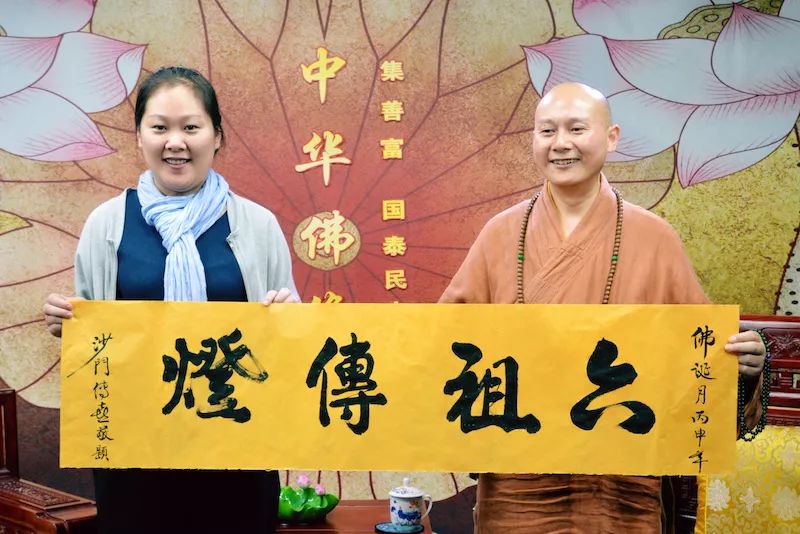 中华佛
集善富 国泰民
佛誕月丙申年
六祖傳燈
沙門傳喜敬題